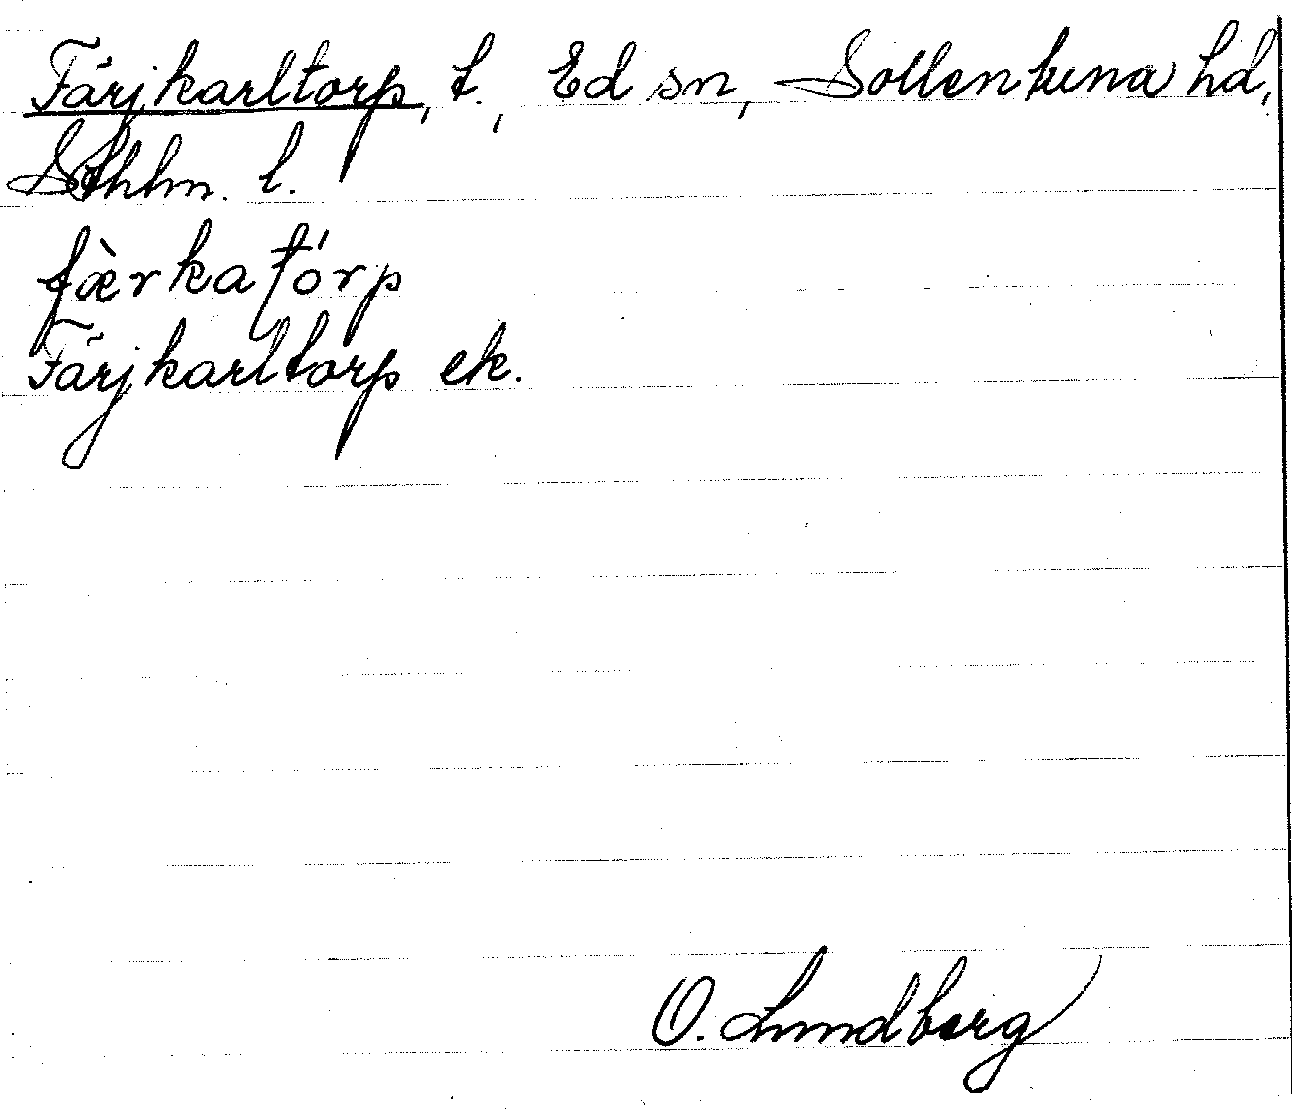 Färjkarltorp, t., Ed sn, Sollentuna hd,
Sthlm. l.
fæ̀rkatórp
Färjkarltorp ek.
O. Lundberg